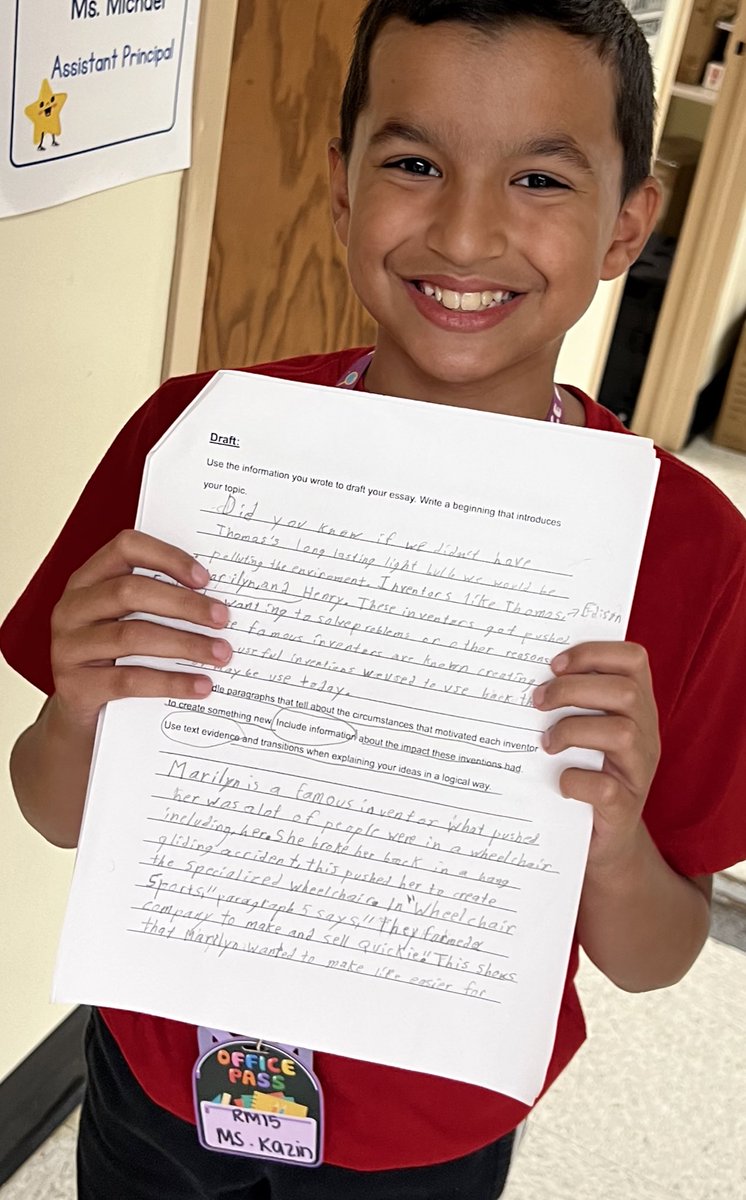 Ms. Michael
Assistant Principal
Draft:
Use the information you wrote to draft your essay. Write a beginning that introduces
your topic.
Did you know if we didn't have
Thomas's long lasting light bulb we would be
polluting the enviroment. Inventors like Thomas → Edison
Marilyn, and Henry. These inventors got pushed
wanting to solve problems or other reasons
famous inventors are known creating
useful inventions we used to use back
may be use today.
dle paragraphs that tell about the circumstances that motivated each inventor
to create something new. Include information about the impact these inventions had.
Use text evidence and transitions when explaining your ideas in a logical way.
Marilyn is a famous inventor what pushed
her was alot of people were in a wheelchair
including her. She broke her back in a hang
gliding accident, this pushed her to create
the specialized wheelchair. In "Wheelchair
Sports," paragraph 5 says, "They formed a
company to make and sell Quickie." This shows
that Marilyn wanted to make life easier for
OFFICE
PASS
RM15
MS. Kazin